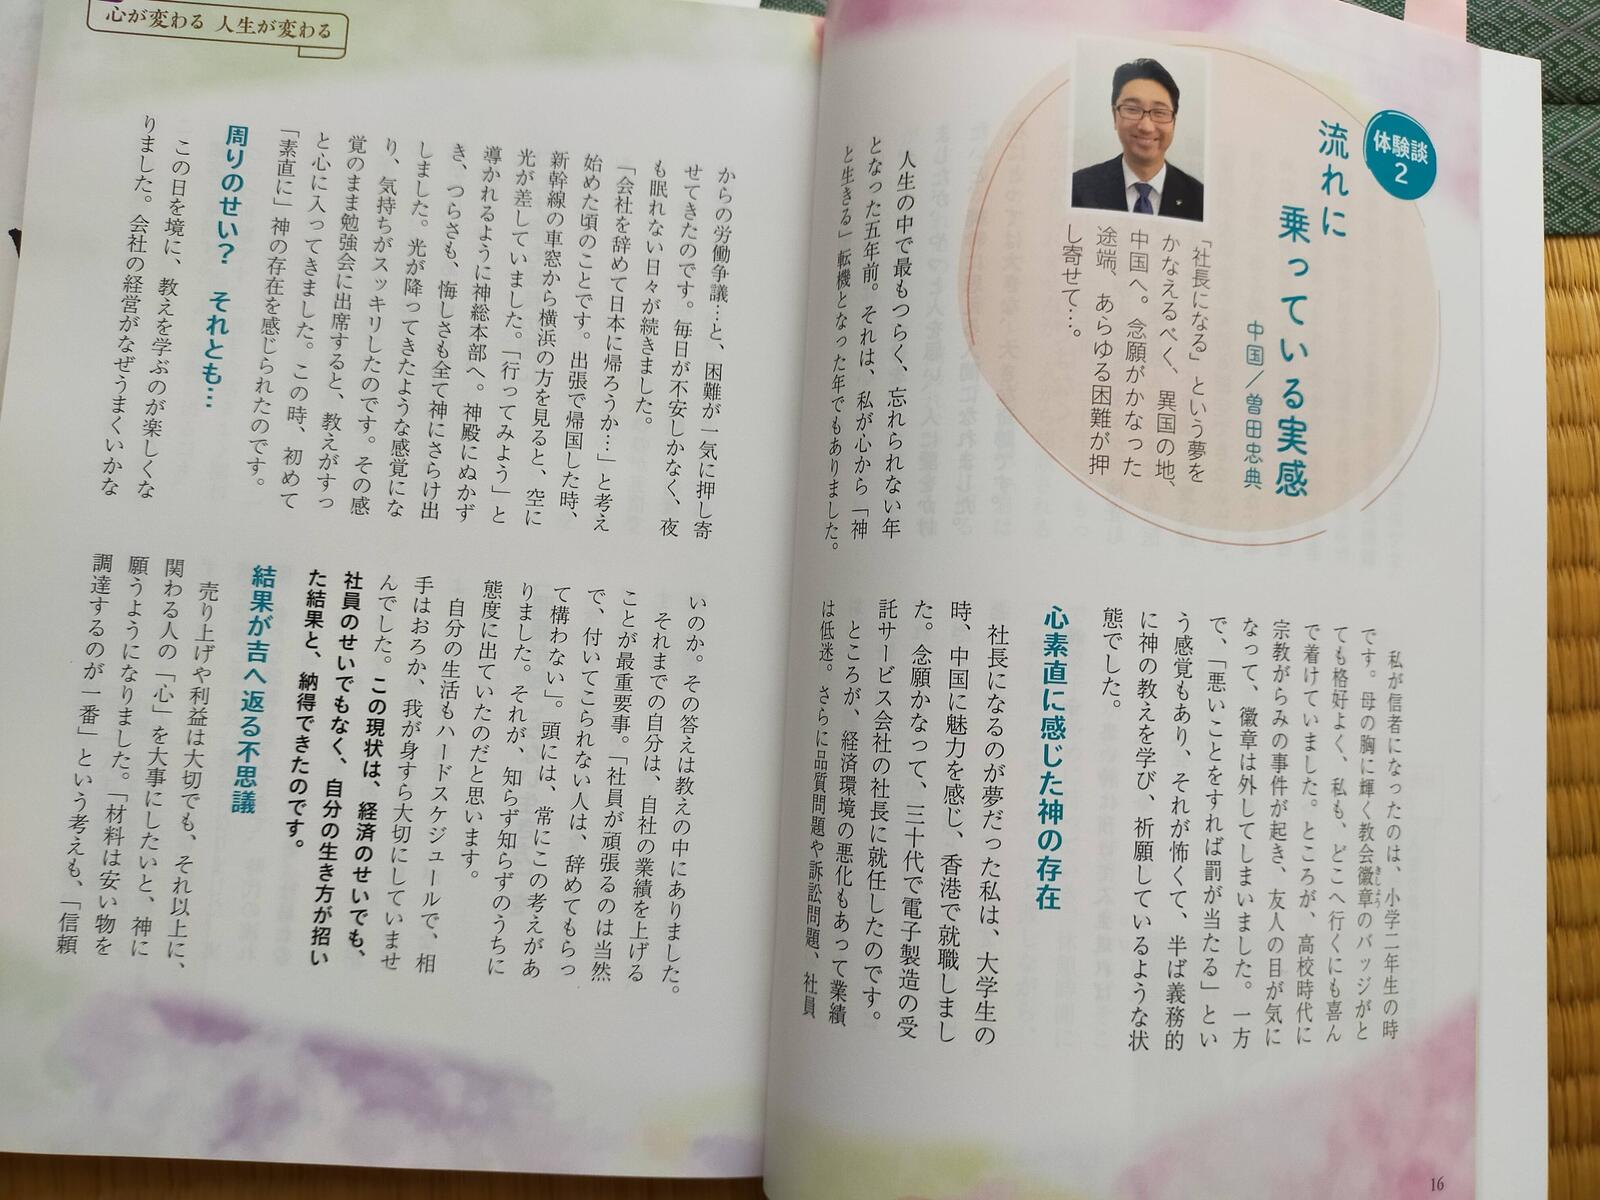 心が変わる 人生が変わる
体験談
2
流れに
乗っている実感
中国／曽田忠典
「社長になる」という夢を
かなえるべく、異国の地、
中国へ。念願がかなった
途端、あらゆる困難が押
し寄せて…。
人生の中で最もつらく、忘れられない年
となった五年前。それは、私が心から「神
と生きる」転機となった年でもありました。
私が信者になったのは、小学二年生の時
です。母の胸に輝く教会徽章のバッジがと
きしょう
ても格好よく、私も、どこへ行くにも喜ん
で着けていました。ところが、高校時代に
宗教がらみの事件が起き、友人の目が気に
なって、徽章は外してしまいました。一方
で、「悪いことをすれば罰が当たる」とい
う感覚もあり、それが怖くて、半ば義務的
に神の教えを学び、祈願しているような状
態でした。
心素直に感じた神の存在
社長になるのが夢だった私は、大学生の
時、中国に魅力を感じ、香港で就職しまし
た。念願かなって、三十代で電子製造の受
託サービス会社の社長に就任したのです。
ところが、経済環境の悪化もあって業績
は低迷。さらに品質問題や訴訟問題、社員
16
からの労働争議…と、困難が一気に押し寄
せてきたのです。毎日が不安しかなく、夜
も眠れない日々が続きました。
「会社を辞めて日本に帰ろうか…」と考え
始めた頃のことです。出張で帰国した時、
新幹線の車窓から横浜の方を見ると、空に
光が差していました。「行ってみよう」と
導かれるように神総本部へ。神殿にぬかず
き、つらさも、悔しさも全て神にさらけ出
しました。光が降ってきたような感覚にな
り、気持ちがスッキリしたのです。その感
覚のまま勉強会に出席すると、教えがすっ
と心に入ってきました。この時、初めて
「素直に」神の存在を感じられたのです。
周りのせい？ それとも…
この日を境に、教えを学ぶのが楽しくな
りました。会社の経営がなぜうまくいかな
いのか。その答えは教えの中にありました。
それまでの自分は、自社の業績を上げる
ことが最重要事。「社員が頑張るのは当然
で、付いてこられない人は、辞めてもらっ
て構わない」。頭には、常にこの考えがあ
りました。それが、知らず知らずのうちに
態度に出ていたのだと思います。
自分の生活もハードスケジュールで、相
手はおろか、我が身すら大切にしていませ
んでした。この現状は、経済のせいでも、
社員のせいでもなく、自分の生き方が招い
た結果と、納得できたのです。
結果が吉へ返る不思議
売り上げや利益は大切でも、それ以上に、
関わる人の「心」を大事にしたいと、神に
願うようになりました。「材料は安い物を
調達するのが一番」という考えも、「信頼